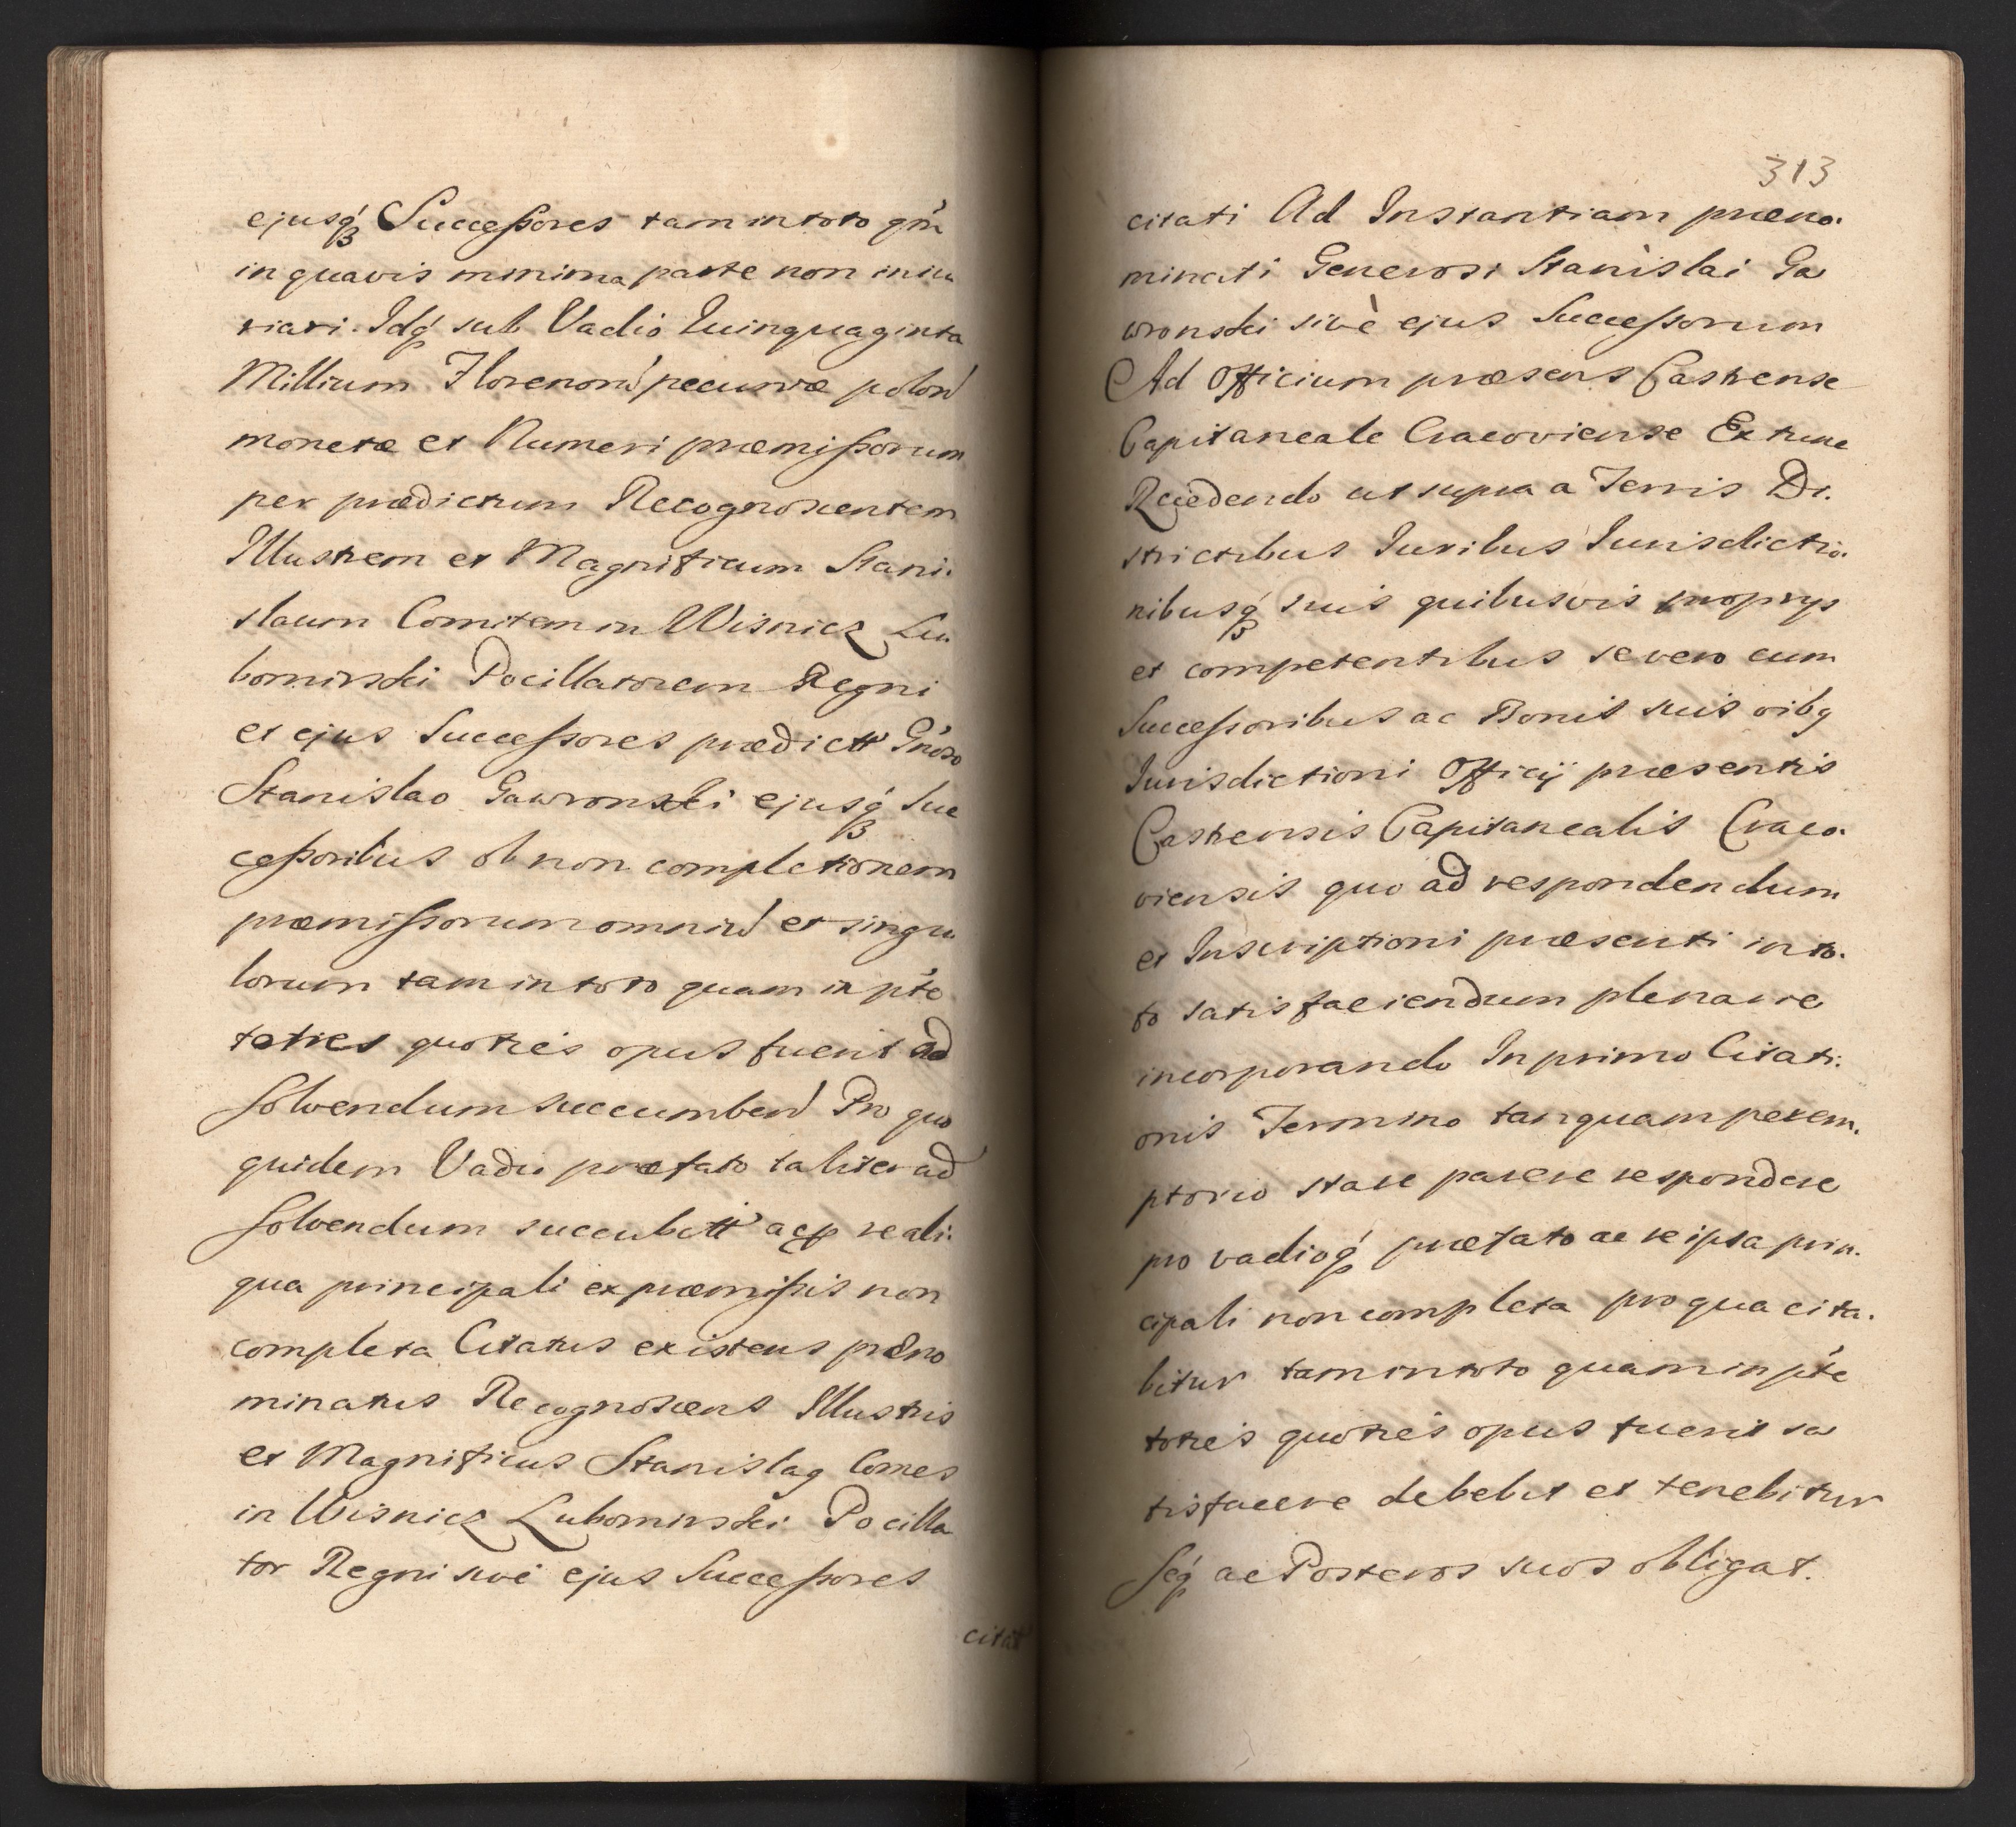 ejusq́ Successores tam in toto qm̄
in quavis minima parte non iniu
riari. Idq́ sub Vadio Quinquaginta
Millium Florenorú pecuniæ poloń
monetæ et Numeri præmissorum
per prædictum Recognoscentem
Illustrem et Magnificum Stani.
slaum Comitem in Wisnicz Lu.
bomirski Pocillatorem Regni
et ejus Successores prædictt Gńoso
Stanislao Gawronski ejusq́ Suc
cessoribus ob non completionem
præmissorum omniú et singu
lorum tam in toto quam in pťe
toties quoties opus fuerit ad
solvendum succumbeń Pro quo
quidem Vadio præfato taliter ad
solvendum succubitt acp re ali.
qua principali ex præmissis non
completa Citatus existens præno
minatus Recognoscens Illustris
et Magnificus Stanislaq Comes
in Wisnicz Lubomirski Pocilla
tor Regni sivè ejus Successores
citati
313
citati Ad Instantiam præno.
minati Generosi Stanislai Ga
wronski sivè ejus Successorum
Ad Officium præsens Castrense
Capitaneale Cracoviense Ex tunc
Recedendo ut supra a Terris Di.
strictibus Iuribus Iurisdictio.
nibusq́ suis quibusvis proprys
et competentibus se vero cum
Successoribus ac Bonis suis oibq
Iurisdictioni Officij præsentis
Castrensis Capitanealis Craco.
viensis quo ad respondendum
et Inscriptioni præsenti in to.
to satisfaciendum plenarie
incorporando In primo Citati.
onis Termino tanquam perem.
ptorio stare parere respondere
pro vadioq́ præfato ac re ipsa prin.
cipali non completa pro qua cita.
bitur tam in toto quam in pťe
toties quoties opus fuerit sa
tisfacere debebit et tenebitur
Seq́ ac Posteros suos obligat.